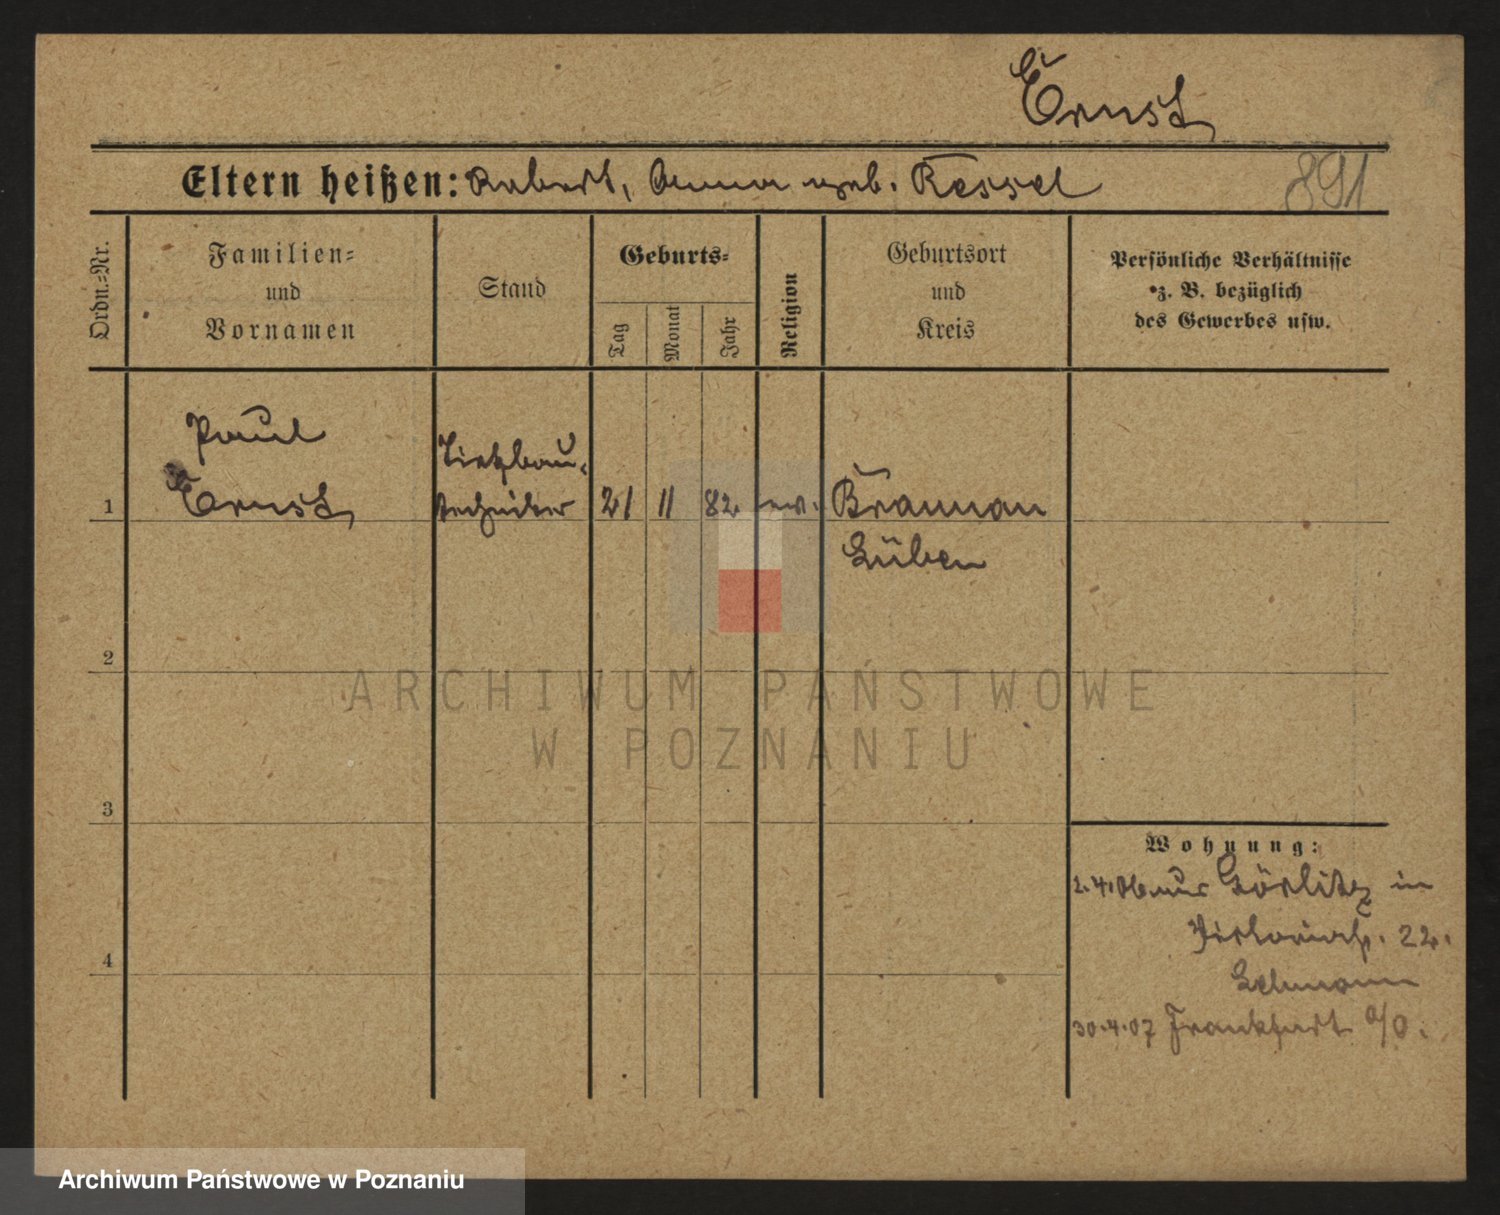 Ernst
Eltern heißen: Robert, Anna geb. Kessel
891
Ordn.=Nr.
Familien=
und
Vornamen
Stand
Geburts=
Tag
Monat
Jahr
Religion
Geburtsort
und
Kreis
Persönliche Verhältnisse
z. B. bezüglich
des Gewerbes usw.
Paul
Tiefbau-
1 Ernst techniker 21 11 82 ev. Braunau
Lüben
2
ARCHIWUM PAŃSTWOWE
W POZNANIU
3
Wohnung:
2.4.06 aus Görlitz in
Viktoriastr. 22.
Lehmann
4
30.4.07 Frankfurt a/O.
Archiwum Państwowe w Poznaniu